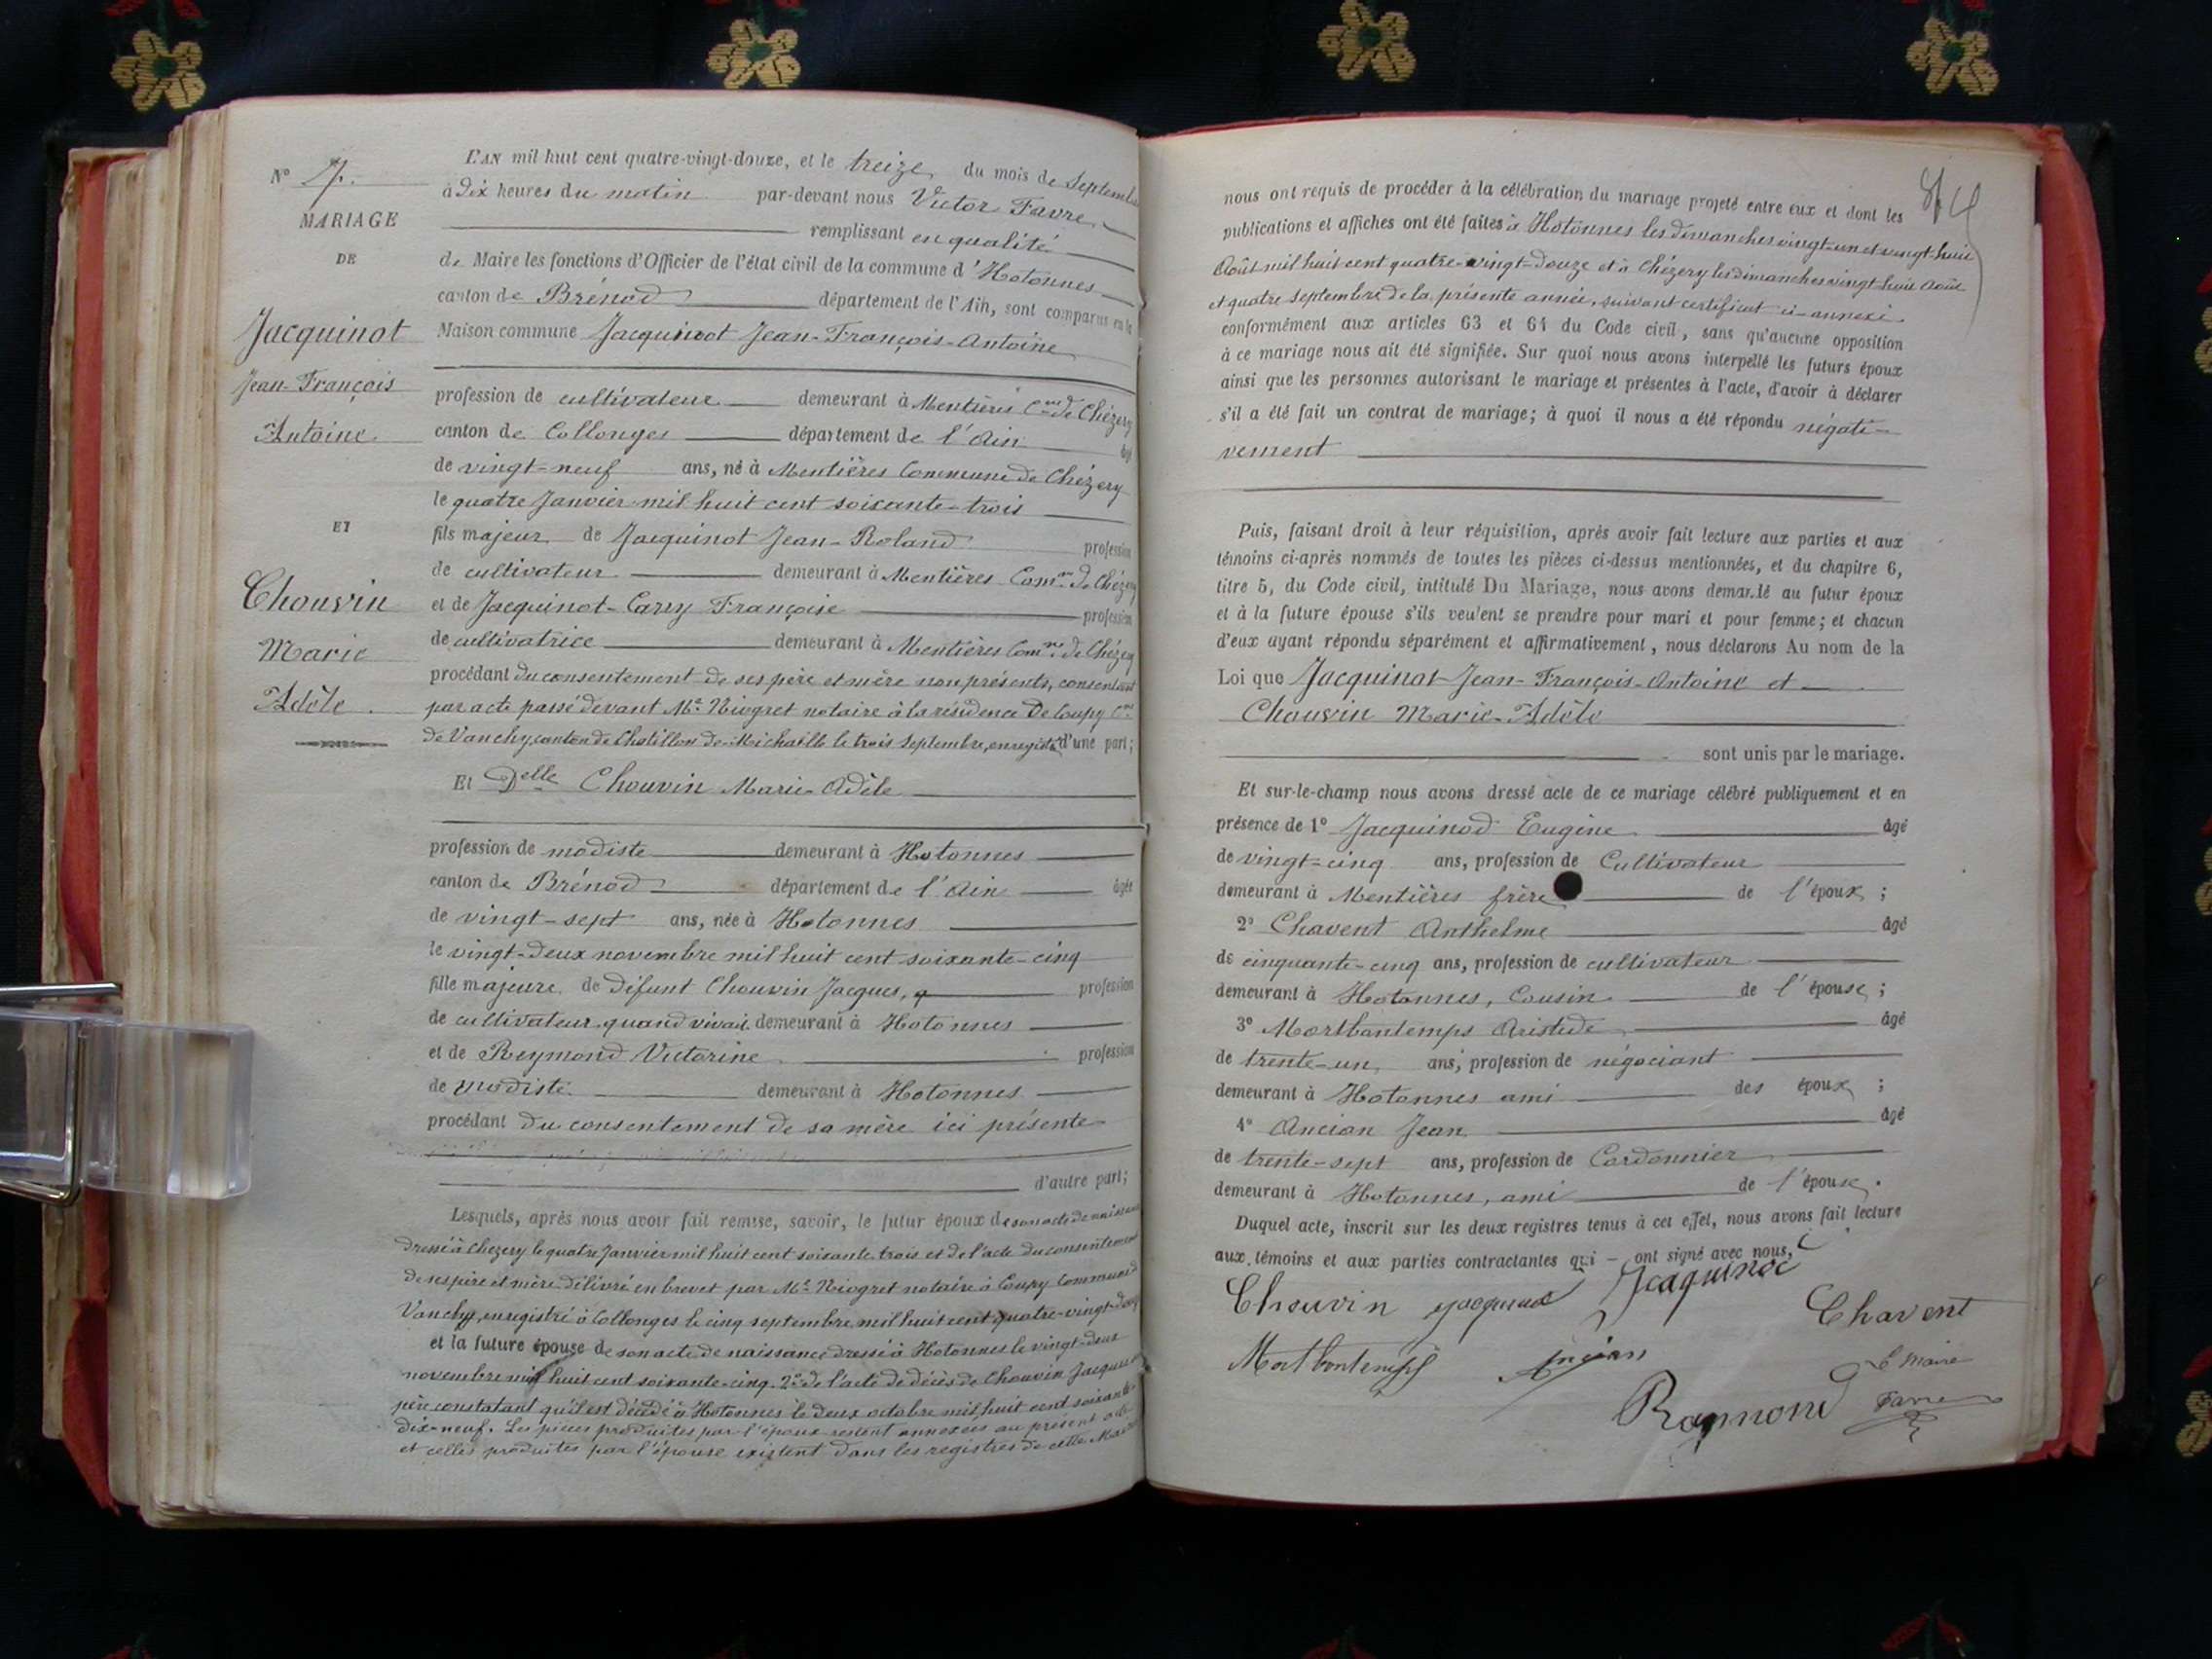 N° 7.
MARIAGE
DE
Jacquinot
Jean-François
Antoine
ET
Chouvin
Marie
Adèle
L'AN mil huit cent quatre-vingt-douze, et le treize du mois de Septembre
à dix heures du matin par-devant nous Victor Favre
remplissant en qualité
de Maire les fonctions d'Officier de l'état civil de la commune d'Hotonnes
canton de Brénod département de l'Ain, sont comparus en la
Maison commune Jacquinot Jean-François-Antoine
profession de cultivateur demeurant à Mentières Cne de Chézery
canton de Collonges département de l'Ain âgé
de vingt-neuf ans, né à Mentières Commune de Chézery
le quatre Janvier mil huit cent soixante-trois
fils majeur de Jacquinot Jean-Roland profession
de cultivateur demeurant à Mentières Comne de Chézery
et de Jacquinot-Carry Françoise profession
de cultivatrice demeurant à Mentières Comne de Chézery
procédant du consentement de ses père et mère non présents, consentant
par acte passé devant Me Niogret notaire à la résidence de Coupy Cne
de Vanchy, canton de Chatillon de Michaille le trois Septembre, enregistré d'une part;
Et Delle Chouvin Marie-Adèle
profession de modiste demeurant à Hotonnes
canton de Brénod département de l'Ain âgée
de vingt-sept ans, née à Hotonnes
le vingt-deux novembre mil huit cent soixante-cinq
fille majeure de défunt Chouvin Jacques, profession
de cultivateur quand vivait demeurant à Hotonnes
et de Reymond Victorine profession
de modiste demeurant à Hotonnes
procédant du consentement de sa mère ici présente
d'autre part;
Lesquels, après nous avoir fait remise, savoir, le futur époux de son acte de naissance
dressé à Chézery le quatre Janvier mil huit cent soixante trois et de l'acte du consentement
de ses père et mère délivré en brevet par Me Niogret notaire à Coupy Commune de
Vanchy, enregistré à Collonges le cinq septembre mil huit cent quatre-vingt-douze
et la future épouse de son acte de naissance dressé à Hotonnes le vingt-deux
novembre mil huit cent soixante-cinq. 2° de l'acte de décès de Chouvin Jacques
père constatant qu'il est décédé à Hotonnes le deux octobre mil huit cent soixante
dix-neuf. Les pièces produites par l'époux restent annexées au présent acte
et celles produites par l'épouse existent dans les registres de cette Mairie
nous ont requis de procéder à la célébration du mariage projeté entre eux et dont les
publications et affiches ont été faites à Hotonnes les dimanches vingt-un et vingt-huit
Août mil huit cent quatre-vingt-douze et à Chézery les dimanches vingt huit Août
et quatre Septembre de la présente année, suivant certificat ci-annexé
conformément aux articles 63 et 64 du Code civil, sans qu'aucune opposition
à ce mariage nous ait été signifiée. Sur quoi nous avons interpellé les futurs époux
ainsi que les personnes autorisant le mariage et présentes à l'acte, d'avoir à déclarer
s'il a été fait un contrat de mariage; à quoi il nous a été répondu négati-
vement
Puis, faisant droit à leur réquisition, après avoir fait lecture aux parties et aux
témoins ci-après nommés de toutes les pièces ci-dessus mentionnées, et du chapitre 6,
titre 5, du Code civil, intitulé Du Mariage, nous avons demandé au futur époux
et à la future épouse s'ils veulent se prendre pour mari et pour femme; et chacun
d'eux ayant répondu séparément et affirmativement, nous déclarons Au nom de la
Loi que Jacquinot Jean-François-Antoine et
Chouvin Marie-Adèle
sont unis par le mariage.
Et sur-le-champ nous avons dressé acte de ce mariage célébré publiquement et en
présence de 1° Jacquinod Eugène âgé
de vingt-cinq ans, profession de Cultivateur
demeurant à Mentières frère de l'époux;
2° Chavent Anthelme âgé
de cinquante-cinq ans, profession de cultivateur
demeurant à Hotonnes, Cousin de l'épouse;
3° Mortbontemps Aristide âgé
de trente-un ans, profession de négociant
demeurant à Hotonnes ami des époux;
4° Ancian Jean âgé
de trente-sept ans, profession de Cordonnier
demeurant à Hotonnes, ami de l'époux.
Duquel acte, inscrit sur les deux registres tenus à cet effet, nous avons fait lecture
aux témoins et aux parties contractantes qui ont signé avec nous,
Chouvin Jacquinot
Chavent
Mortbontemps Ancian
Le Maire
Raymond Favre